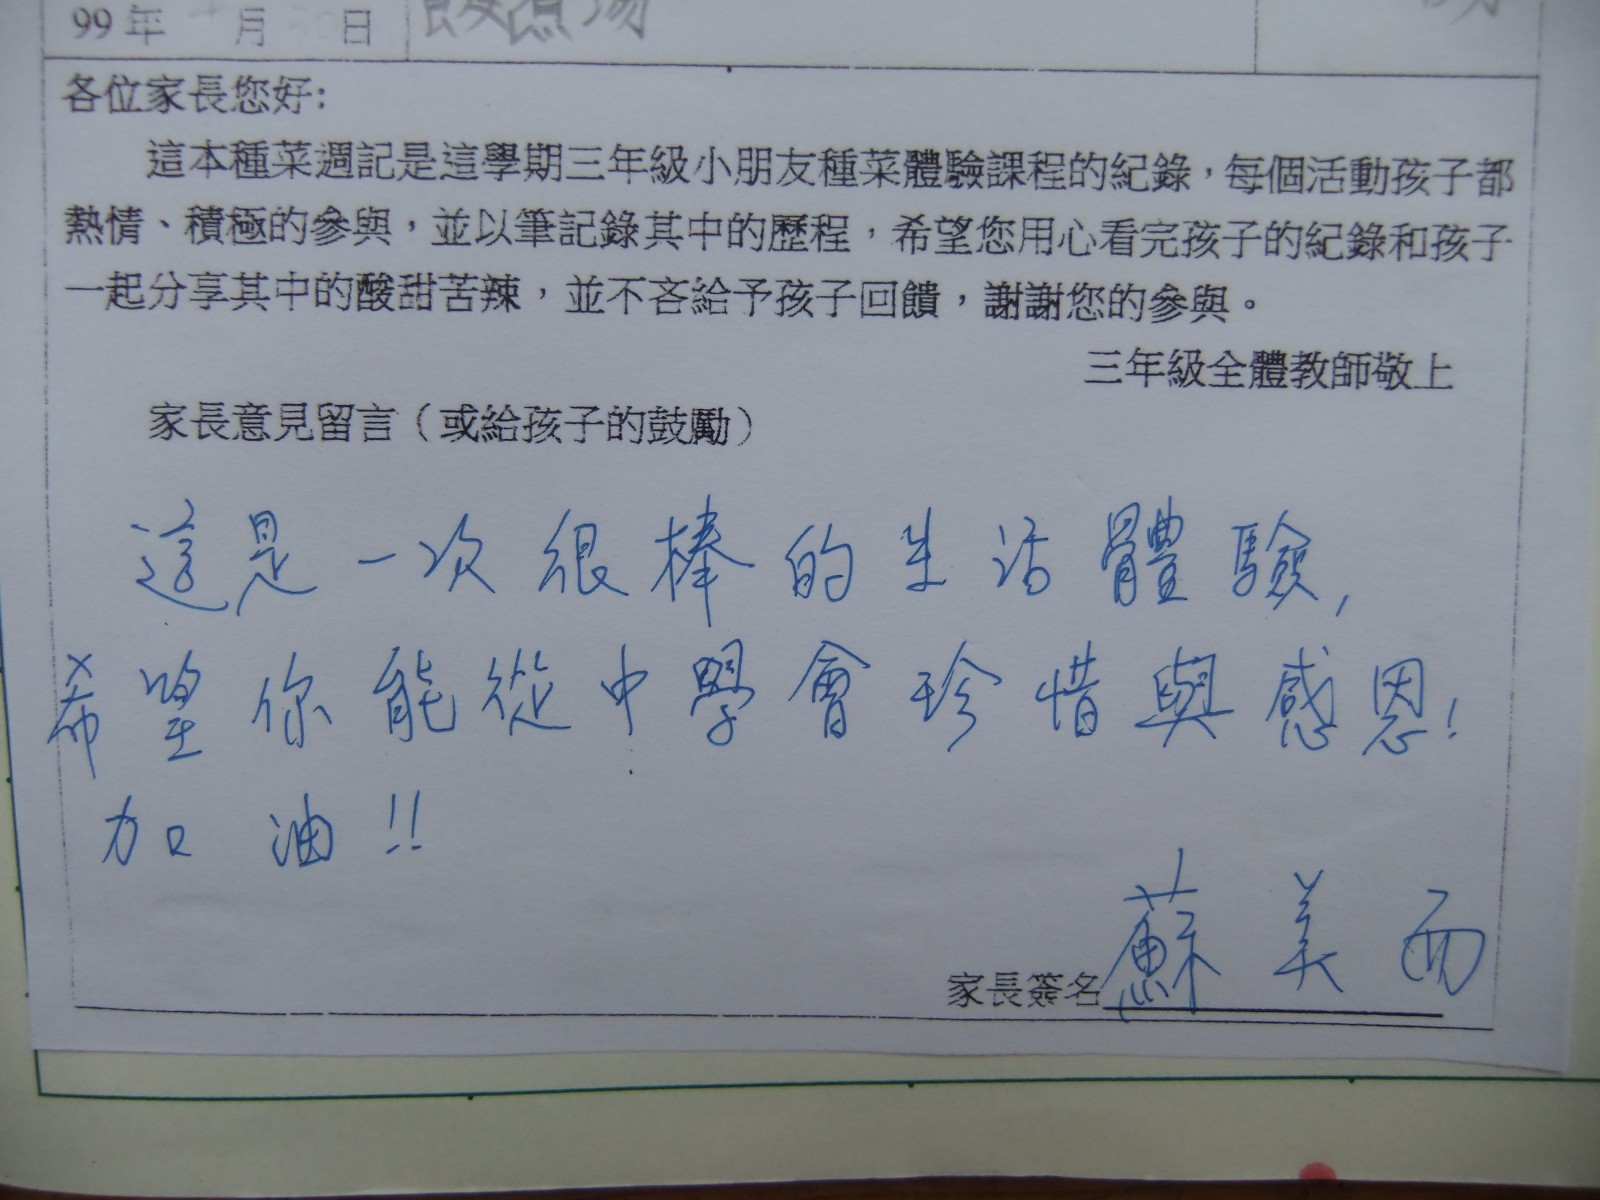 99年 月 日
各位家長您好:
這本種菜週記是這學期三年級小朋友種菜體驗課程的紀錄，每個活動孩子都
熱情、積極的參與，並以筆記錄其中的歷程，希望您用心看完孩子的紀錄和孩子
一起分享其中的酸甜苦辣，並不吝給予孩子回饋，謝謝您的參與。
三年級全體教師敬上
家長意見留言（或給孩子的鼓勵）
這是一次很棒的生活體驗，
希望你能從中學會珍惜與感恩！
加油！！
家長簽名蘇美而